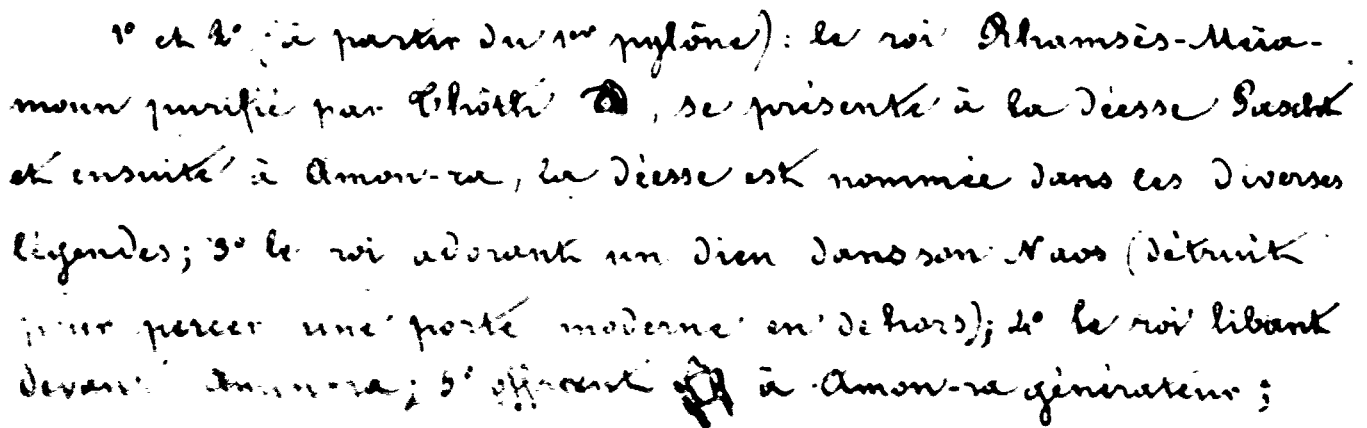 1° et 2° (à partir du 1er pylône) : le roi Rhamsès-Meïa-
moun purifié par Thôth, se présente à la déesse Pascht
et ensuite à Amon-ra, la déesse est nommée dans les diverses
légendes; 3° le roi adorant un dieu dans son Naos (détruit
pour percer une porte moderne en dehors); 4° le roi libant
devant Amon-ra; 5° offrant à Amon-ra générateur;